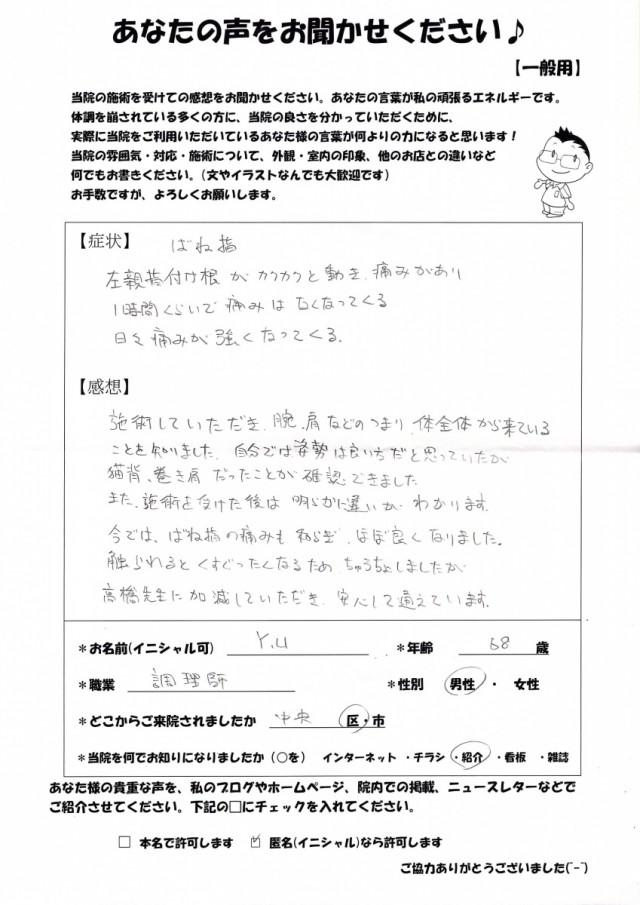 あなたの声をお聞かせください♪
【一般用】
当院の施術を受けての感想をお聞かせください。あなたの言葉が私の頑張るエネルギーです。
体調を崩されている多くの方に、当院の良さを分かっていただくために、
実際に当院をご利用いただいているあなた様の言葉が何よりの力になると思います！
当院の雰囲気・対応・施術について、外観・室内の印象、他のお店との違いなど
何でもお書きください。（文やイラストなんでも大歓迎です）
お手数ですが、よろしくお願いします。
【症状】 ばね指
左親指付け根がカクカクと動き、痛みがあり
1時間くらいで痛みはなくなってくる
日々痛みが強くなってくる。
【感想】
施術していただき、腕、肩などのつまり、体全体から来ている
ことを知りました。自分では姿勢は良い方だと思っていたが
猫背、巻き肩だったことが確認できました
また、施術を受けた後は明らかに違いがわかります。
今では、ばね指の痛みも和らぎ、ほぼ良くなりました。
触られるとくすぐったくなるため、ちゅうちょしましたが
高橋先生に加減していただき、安心して通えています。
＊お名前(イニシャル可) Y.U ＊年齢 68 歳
＊職業 調理師 ＊性別 男性 ・ 女性
＊どこからご来院されましたか 中央 区・市
＊当院を何でお知りになりましたか（○を） インターネット ・チラシ ・紹介 ・看板 ・雑誌
あなた様の貴重な声を、私のブログやホームページ、院内での掲載、ニュースレターなどで
ご紹介させてください。下記の□にチェックを入れてください。
□ 本名で許可します ☑ 匿名(イニシャル)なら許可します
ご協力ありがとうございました(^-^)